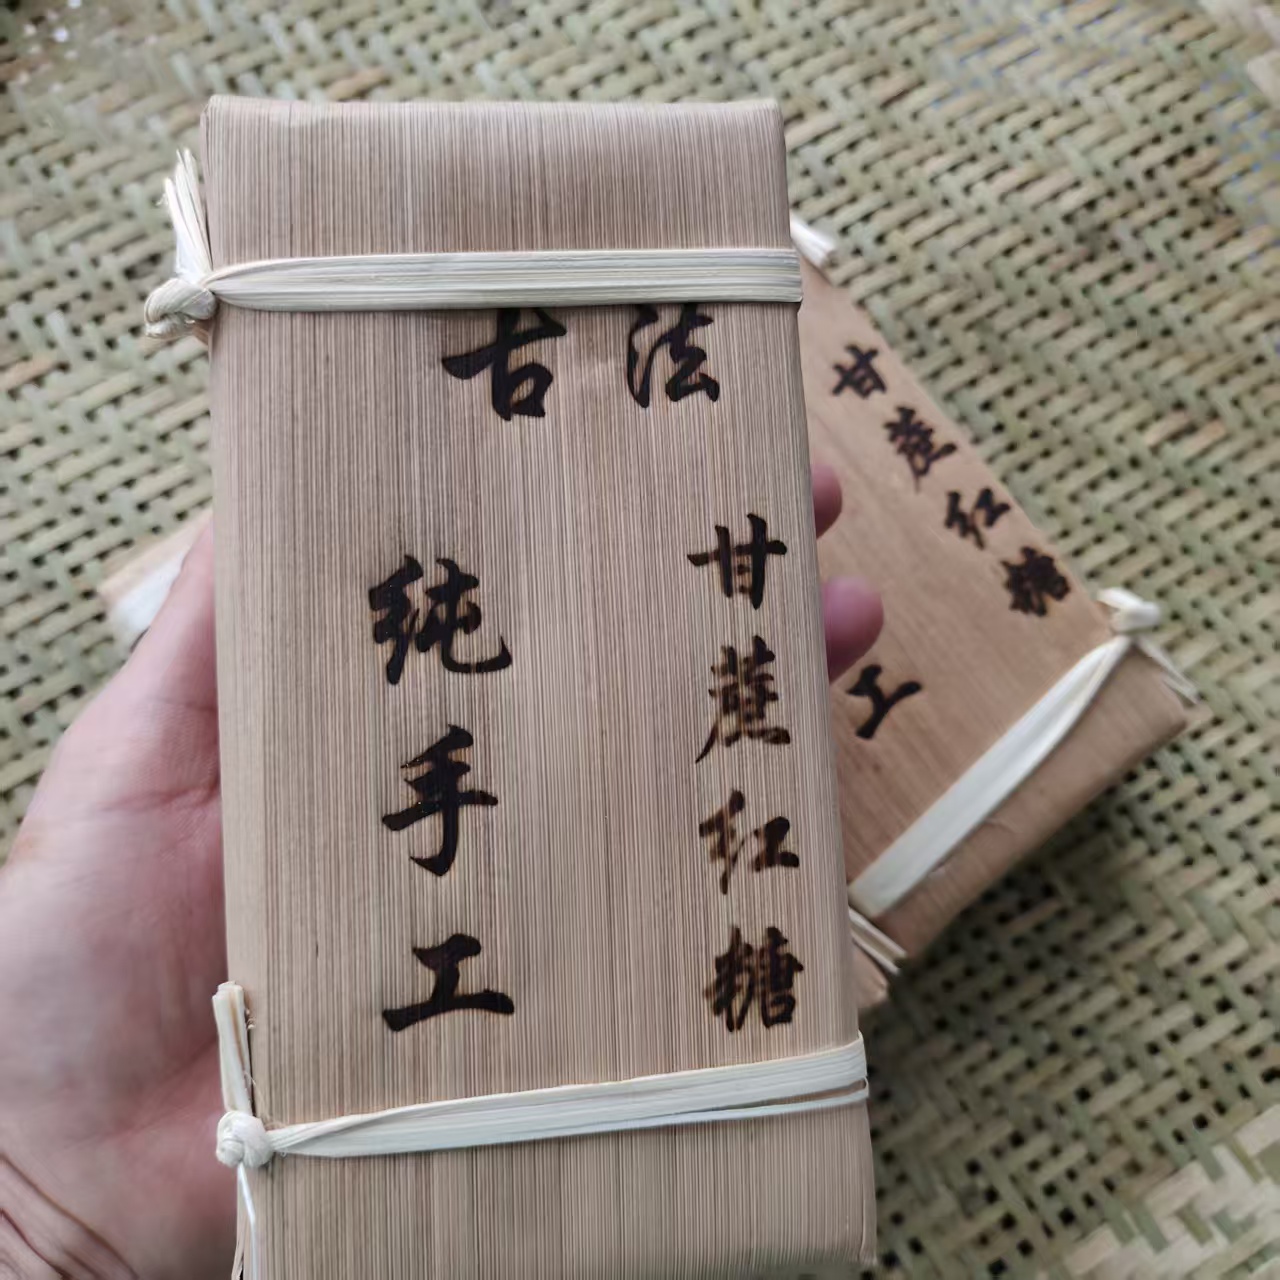 古法
甘蔗红糖
纯手工
甘蔗红糖
工